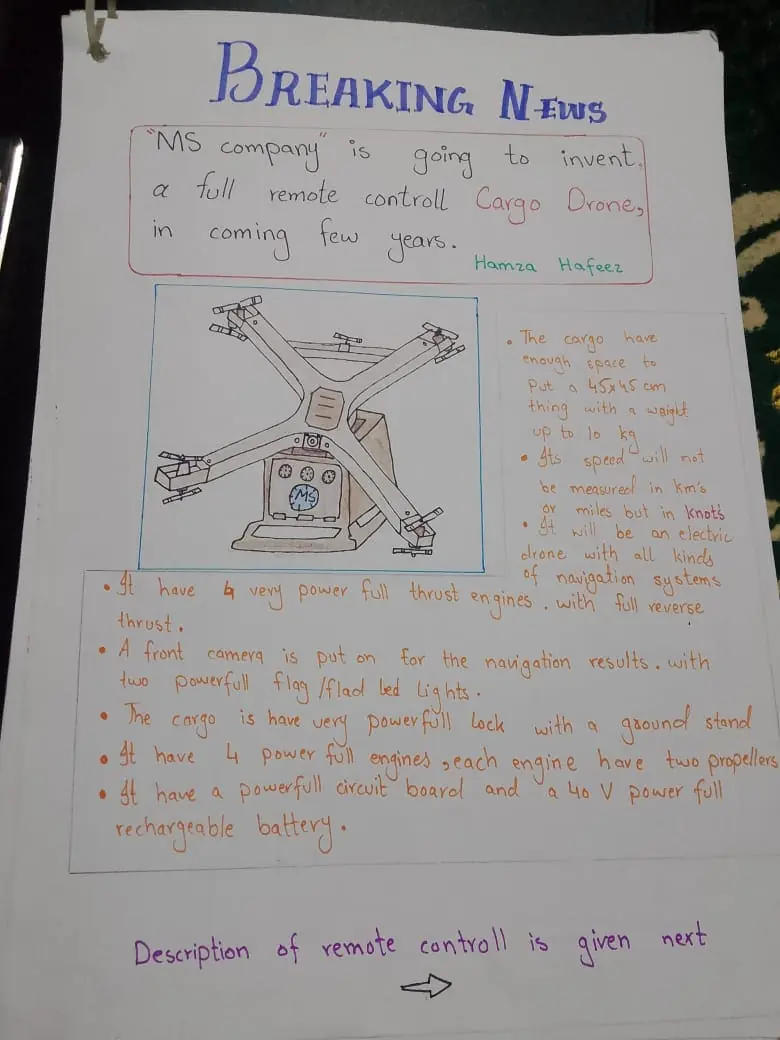 BREAKING NEWS
"MS company" is going to invent,
a full remote controll Cargo Drone,
in coming few years.
Hamza Hafeez
• The cargo have
enough space to
put a 45x45 cm
thing with a weight
up to 10 kg
• Its speed will not
be measured in km's
or miles but in knot's
• It will be an electric
drone with all kinds
of navigation systems
MS
• It have 4 very power full thrust engines . with full reverse
thrust.
• A front camera is put on for the navigation results . with
two powerfull flag /flad led Lights .
• The cargo is have very powerfull Lock with a ground stand
• It have 4 power full engines , each engine have two propellers
• It have a powerfull circuit board and a 40 V power full
rechargeable battery .
Description of remote controll is given next